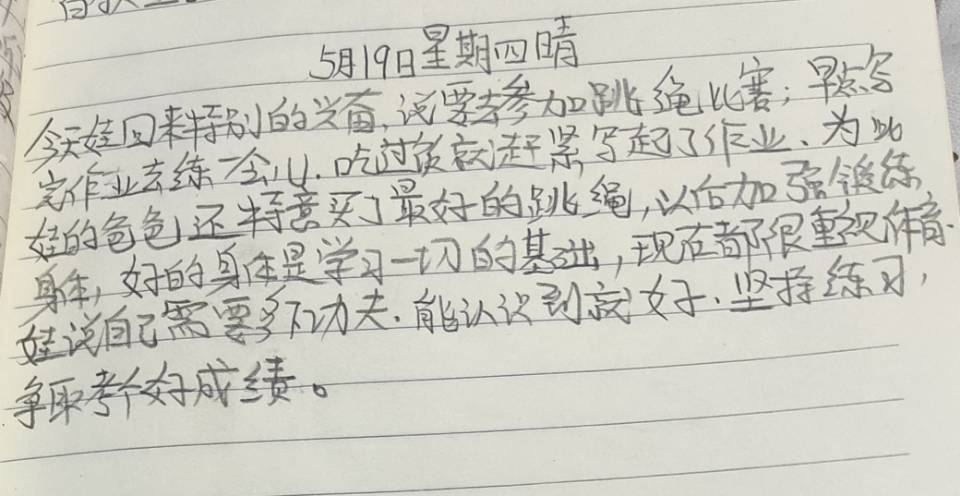 5月19日星期四晴
今天娃回来特别的兴奋,说要去参加跳绳比赛;早点写
完作业去练一会儿.吃过饭就赶紧写起了作业、为此
娃的爸爸还特意买了最好的跳绳,以后加强锻练
身体,好的身体是学习一切的基础,现在都很重视体育.
娃说自己需要多下功夫.能认识到就好.坚持练习,
争取考个好成绩。